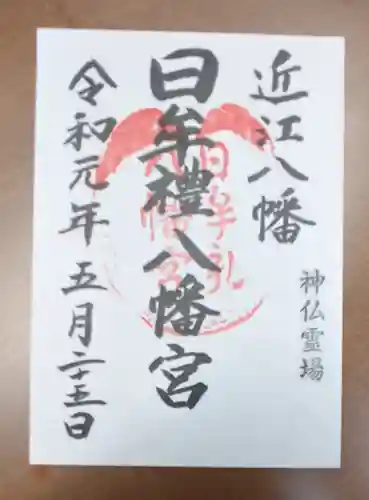 近江八幡
神仏霊場
日牟禮八幡宮
令和元年五月二十五日
日牟礼
八幡宮